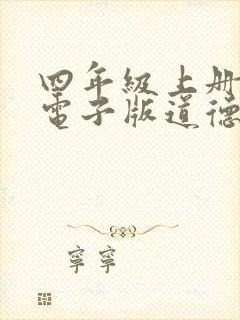 四年级上册
电子版道德
宁宁